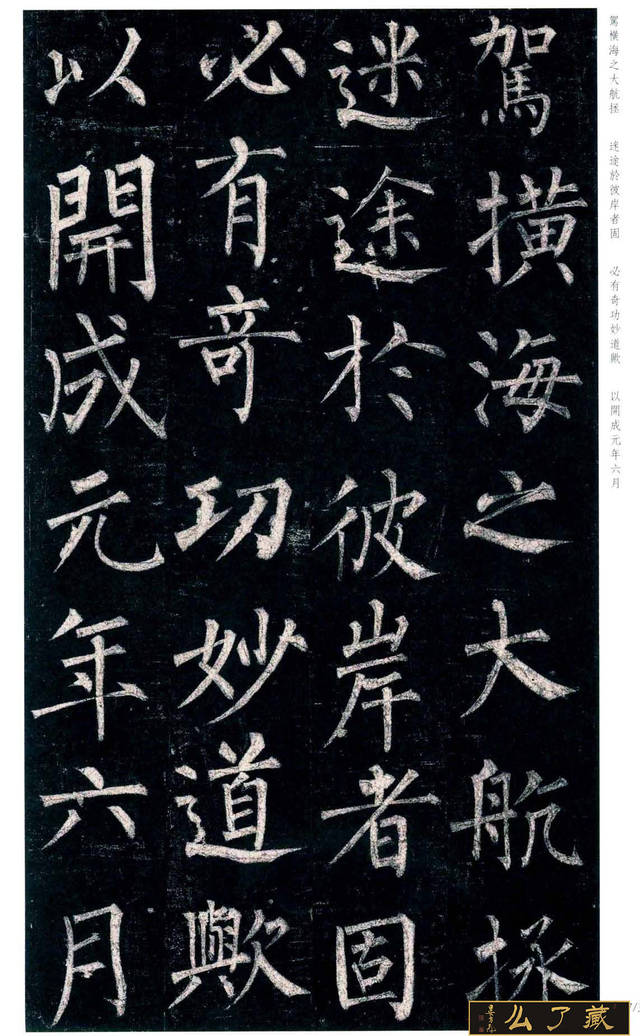 駕橫海之大航拯
迷途於彼岸者固
必有奇功妙道歟
以開成元年六月
駕橫海之大航拯 迷途於彼岸者固 必有奇功妙道歟 以開成元年六月
藏了么